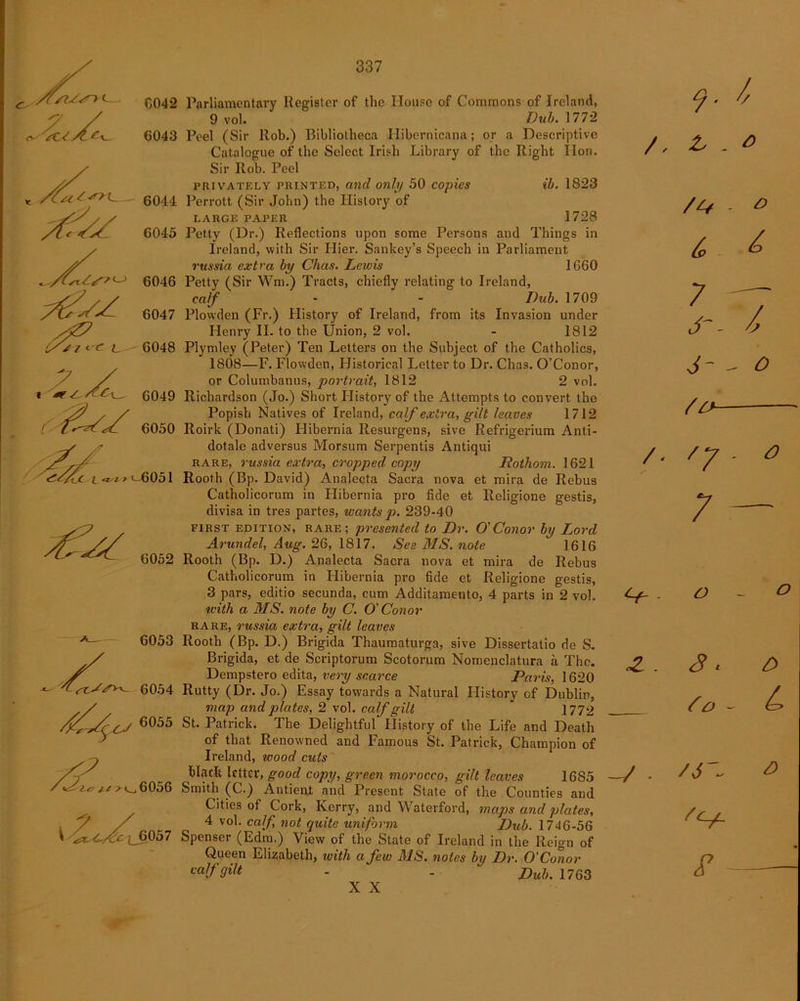 337
6042 Parliamentary Register of the House of Commons of Ireland,
9 vol. Dub. 1772
9 · 6
6043 Peel (Sir Rob.) Bibliotheca Hibernicana; or a Descriptive
Catalogue of the Select Irish Library of the Right Hon.
Sir Rob. Peel
PRIVATELY PRINTED, and only 50 copies ib. 1823
1 . 2 - 0
6044 Perrott (Sir John) the History of
LARGE PAPER 1728
14 - 0
6045 Petty (Dr.) Reflections upon some Persons and Things in
Ireland, with Sir Hier. Sankey's Speech in Parliament
russia extra by Chas. Lewis 1660
6 6
6046 Petty (Sir Wm.) Tracts, chiefly relating to Ireland,
calf - - Dub. 1709
7 —
6047 Plowden (Fr.) History of Ireland, from its Invasion under
Henry II. to the Union, 2 vol. - 1812
5 - 6
6048 Plymley (Peter) Ten Letters on the Subject of the Catholics,
1808—F. Plowden, Historical Letter to Dr. Chas. O'Conor,
or Columbanus, portrait, 1812 2 vol.
5 - 0
6049 Richardson (Jo.) Short History of the Attempts to convert the
Popish Natives of Ireland, calf extra, gilt leaves 1712
10 —
6050 Roirk (Donati) Hibernia Resurgens, sive Refrigerium Anti-
dotale adversus Morsum Serpentis Antiqui
RARE, russia extra, cropped copy Rothom. 1621
1 · 17 - 0
6051 Rooth (Bp. David) Analecta Sacra nova et mira de Rebus
Catholicorum in Hibernia pro fide et Religione gestis,
divisa in tres partes, wants p. 239-40
FIRST EDITION, RARE; presented to Dr. O'Conor by Lord
Arundel, Aug. 26, 1817. See MS. note 1616
7 —
6052 Rooth (Bp. D.) Analecta Sacra nova et mira de Rebus
Catholicorum in Hibernia pro fide et Religione gestis,
3 pars, editio secunda, cum Additamento, 4 parts in 2 vol.
with a MS. note by C. O'Conor
RARE, russia extra, gilt leaves
4 - 0 - 0
6053 Rooth (Bp. D.) Brigida Thaumaturga, sive Dissertatio de S.
Brigida, et de Scriptorum Scotorum Nomenclatura à Tho.
Dempstero edita, very scarce Paris, 1620
2 - 8 · 0
6054 Rutty (Dr. Jo.) Essay towards a Natural History of Dublin,
map and plates, 2 vol. calf gilt 1772
10 - 6
6055 St. Patrick. The Delightful History of the Life and Death
of that Renowned and Famous St. Patrick, Champion of
Ireland, wood cuts
black letter, good copy, green morocco, gilt leaves 1685
1 - 15 - 0
6056 Smith (C.) Antient and Present State of the Counties and
Cities of Cork, Kerry, and Waterford, maps and plates,
4 vol. calf, not quite uniform Dub. 1746-56
14
6057 Spenser (Edm.) View of the State of Ireland in the Reign of
Queen Elizabeth, with a few MS. notes by Dr. O'Conor
calf gilt - - Dub. 1763
8 —
X X